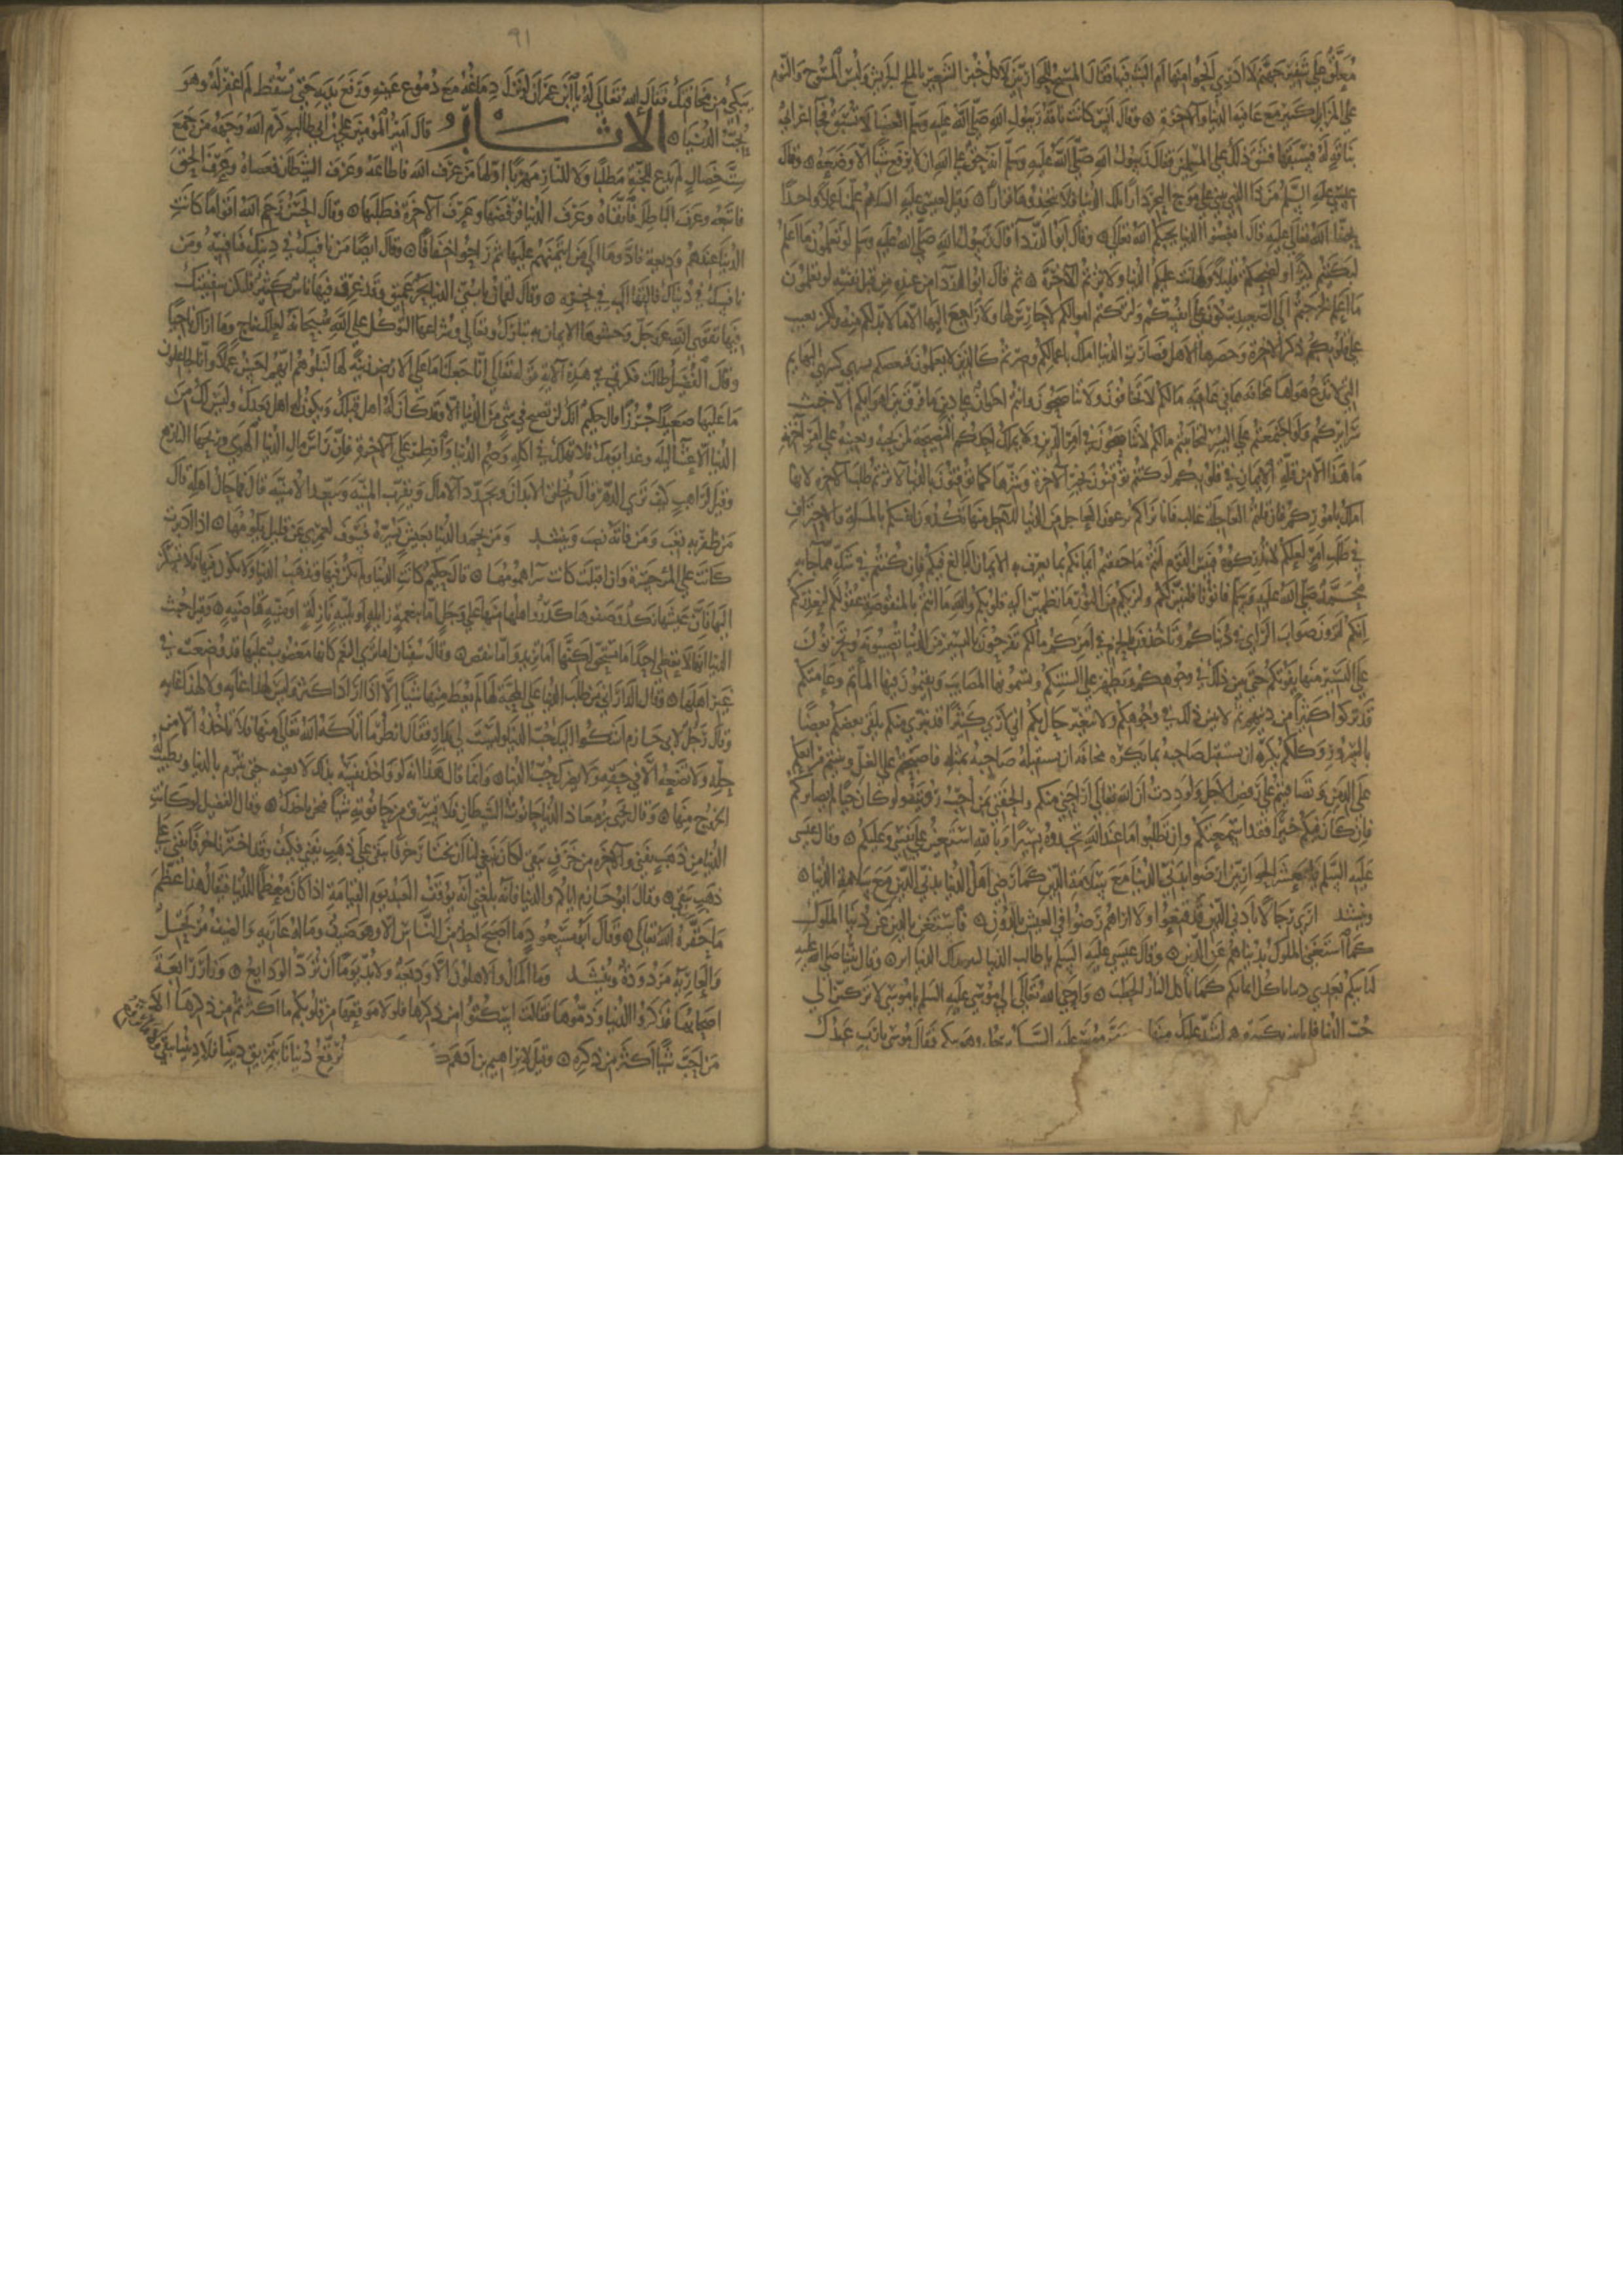 معلق على شفير جهنم لا ادري انجو منها ام البث فيها فقال المسيح للحواريين لاكل خبز الشعير بالملح الجريش ولبس المسوح والنوم
على المزابل كثير مع عافية الدنيا والآخرة وقال انس كانت ناقة رسول الله صلى الله عليه وسلم العضبا لا تسبق فجا اعرابي
بناقة له فسبقها فشق ذلك على المسلمين فقال رسول الله صلى الله عليه وسلم انه حق على الله ان لا يرفع شيئا الا وضعه وقال
عيسى عليه السلم من ذا الذي يبني على موج البحر دارا تلك الدنيا فلا تتخذوها قرارا وقيل لعيسى عليه السلام علمنا علما واحدا
يحبنا الله تعالى عليه قال ابغضوا الدنيا يحبكم الله تعالى وقال ابو الدردا قال رسول الله صلى الله عليه وسلم لو تعلمون ما اعلم
لبكيتم كثيرا ولضحكتم قليلا ولهانت عليكم الدنيا ولآثرتم الآخرة ثم قال ابو الدردا من عنده من قبل نفسه لو تعلمون
ما اعلم لخرجتم الى الصعيد تبكون على انفسكم ولتركتم اموالكم لا حارس لها ولا راجع اليها الا ما لا بد لكم منه ولكن يغيب
على قلوبكم ذكر الآخرة وحضرها الامل فصارت الدنيا املك باعمالكم وصرتم كالذين لا يعلمون فبعضكم شر من البهايم
التي لا تدع هواها مخافة مما في عاقبته مالكم لا تحابون ولا تناصحون وانتم اخوان على دين ما فرق بين اهوايكم الا خبث
سرايركم ولو اجتمعتم على البر لتحاببتم مالكم لا تناصحون في امر الدين ولا يملك احدكم النصيحة لمن يحبه ويعينه على امر آخرته
ما هذا الا من قلة الايمان في قلوبكم لو كنتم توقنون بخير الآخرة وشرها كما توقنون بالدنيا لآثرتم طلب الآخرة لانها
املك باموركم فان قلتم العاجلة غالب فانا نراكم تدعون العاجل من الدنيا للآجل منها تكدون انفسكم بالمشقة والاحتراف
في طلب امر لعلكم لا تدركونه فبئس القوم انتم ما حققتم ايمانكم بما يعرف به الايمان البالغ فيكم فان كنتم في شك مما جا به
محمد صلى الله عليه وسلم فاتونا فلنبين لكم ولنريكم من النور ما تطمئن اليه قلوبكم والله ما انتم بالمنقوصة عقولكم فنعذركم
انكم لترون صواب الراي في دنياكم وتاخذون بالحزم في امركم مالكم تفرحون باليسير من الدنيا تصيبونه وتحزنون
على اليسير منها يفوتكم حتى يتبين ذلك في وجوهكم ويظهر على السنتكم وتسمونها المصايب وتقيمون فيها المآتم وعامتكم
قد تركوا كثيرا من دينهم ثم لا يتبين ذلك في وجوهكم ولا تتغير حالكم اني لأرى الله قد تبرى منكم يلقى بعضكم بعضا
بالسرور وكلكم يكره ان يستقبل صاحبه بما يكره مخافة ان يستقبله صاحبه بمثله فاصطحبتم على الغل ونبتت مراعيكم
على الدمن وتصافيتم على رفض الاجل ولوددت ان الله تعالى اراحني منكم والحقني بمن احب رؤيته ولو كان حيا لم يصابركم
فان كان فيكم خير فقد اسمعتكم وان تطلبوا ما عند الله تجدوه يسيرا وبالله استعين على نفسي وعليكم وقال عيسى
عليه السلم يا معشر الحواريين ارضوا بدني الدنيا مع سلامة الدين كما رضي اهل الدنيا بدني الدين مع سلامة الدنيا
وينشد ارى رجالا بادنى الدين قد قنعوا ولا اراهم رضوا في العيش بالدون فاستغن بالدين عن دنيا الملوك
كما استغنى الملوك بدنياهم عن الدين وقال عيسى عليه السلم يا طالب الدنيا لتبر تركك الدنيا ابر وقال نبينا صلى الله عليه
لتاتينكم بعدي دنيا تاكل ايمانكم كما تاكل النار الحطب واوحى الله تعالى الى موسى عليه السلم يا موسى لا تركنن الى
حب الدنيا فلن تاتيني بكبيرة هي اشد عليك منها ومر موسى عليه السلام برجل وهو يبكي فقال موسى يا رب عبدك
٩١
يبكي من مخافتك فقال الله تعالى له يا ابن عمران لو نزل دماغه مع دموع عينيه ورفع يديه حتى يسقط لم اغفر له وهو
يحب الدنيا الاثار قال امير المؤمنين علي بن ابي طالب كرم الله وجهه من جمع
ست خصال لم يدع للجنة مطلبا ولا للنار مهربا اولها من عرف الله فاطاعه وعرف الشيطان فعصاه وعرف الحق
فاتبعه وعرف الباطل فاتقاه وعرف الدنيا فرفضها وعرف الآخرة فطلبها وقال الحسن رحم الله اقواما كانت
الدنيا عندهم وديعة فادوها الى من ايتمنهم عليها ثم راحوا خفافا وقال ايضا من نافسك في دينك فنافسه ومن
نافسك في دنياك فالقها اليه في نحره وقال لقمان يا بني الدنيا بحر عميق وقد غرق فيها ناس كثير فلتكن سفينتك
فيها تقوى الله عز وجل وحشوها الايمان به تبارك وتعالى وشراعها التوكل على الله سبحانه لعلك ناج وما اراك ناجيا
وقال الفضيل طالت فكرتي في هذه الآية قوله تعالى انا جعلنا ما على الارض زينة لها لنبلوهم ايهم احسن عملا وانا لجاعلون
ما عليها صعيدا جرزا قال حكيم انك لن تصبح في شي من الدنيا الا وقد كان له اهل قبلك ويكون له اهل بعدك وليس لك من
الدنيا الا عشا ليلة وغدا يوم فلا تهلك في اكلة وصم الدنيا وافطر على الآخرة فان راس مال الدنيا الهوى وربحها النار
وقيل لراهب كيف ترى الدهر قال يخلق الابدان ويجدد الآمال ويقرب المنية ويبعد الامنية قال فما حال اهله قال
من ظفر به تعب ومن فاته نصب وينشد ومن يحمد الدنيا بعيش يسره فسوف لعمري عن قليل يلومها اذا ادبرت
كانت على المر حسرة وان اقبلت كانت كثيرا همومها قال حكيم كانت الدنيا ولم اكن فيها وتذهب الدنيا ولا اكون فيها فلا اسكن
اليها فان عيشها نكد وصفوها كدر واهلها منها على وجل اما بنعمة زايلة او بلية نازلة او منية قاضية وقيل من عيب
الدنيا انها لا تعطي احدا ما يستحق لكنها اما تزيد واما تنقص وقال سفيان اما ترى النعم كانها مغضوب عليها قد وضعت في
غير اهلها وقال الداراني من طلب الدنيا على المحبة لها لم يعط منها شيا الا اراد اكثر وليس لهذا غاية ولا لهذا غاية
وقال رجل لابي حازم اشكوا اليك حب الدنيا وليست لي بدار فقال انظر ما اتاكه الله تعالى منها فلا تاخذه الا من
حله ولا تضعه الا في حقه ولا يضرك حب الدنيا وانما قال هذا لانه لو واخذ نفسه بذلك لاتعبه حتى يتبرم بالدنيا ويطلب
الخروج منها وقال يحيى بن معاذ الدنيا حانوت الشيطان فلا تسرق من حانوته شيا فيجي فياخذك وقال الفضيل لو كانت
الدنيا من ذهب يفنى والآخرة من خزف يبقى لكان ينبغي لنا ان نختار خزفا يبقى على ذهب يفنى فكيف وقد اخترنا خزفا يفنى على
ذهب يبقى وقال ابو حازم اياكم والدنيا فانه بلغني انه يوقف العبد يوم القيامة اذا كان معظما للدنيا فيقال هذا عظم
ما حقره الله تعالى وقال ابن مسعود ما اصبح احد من الناس الا وهو ضيف وماله عارية والضيف مرتحل
والعارية مردودة وينشد وما المال والاهلون الا وديعة ولا بد يوما ان ترد الودايع وزار رابعة
اصحابها فذكروا الدنيا وذموها فقالت اسكتوا من ذكرها فلولا موقعها من قلوبكم ما اكثرتم من ذكرها الا
من احب شيا اكثر من ذكره وقيل لابراهيم بن ادهم نرقع دنيانا بتمزيق ديننا فلا ديننا يبقى ولا ما نرقع